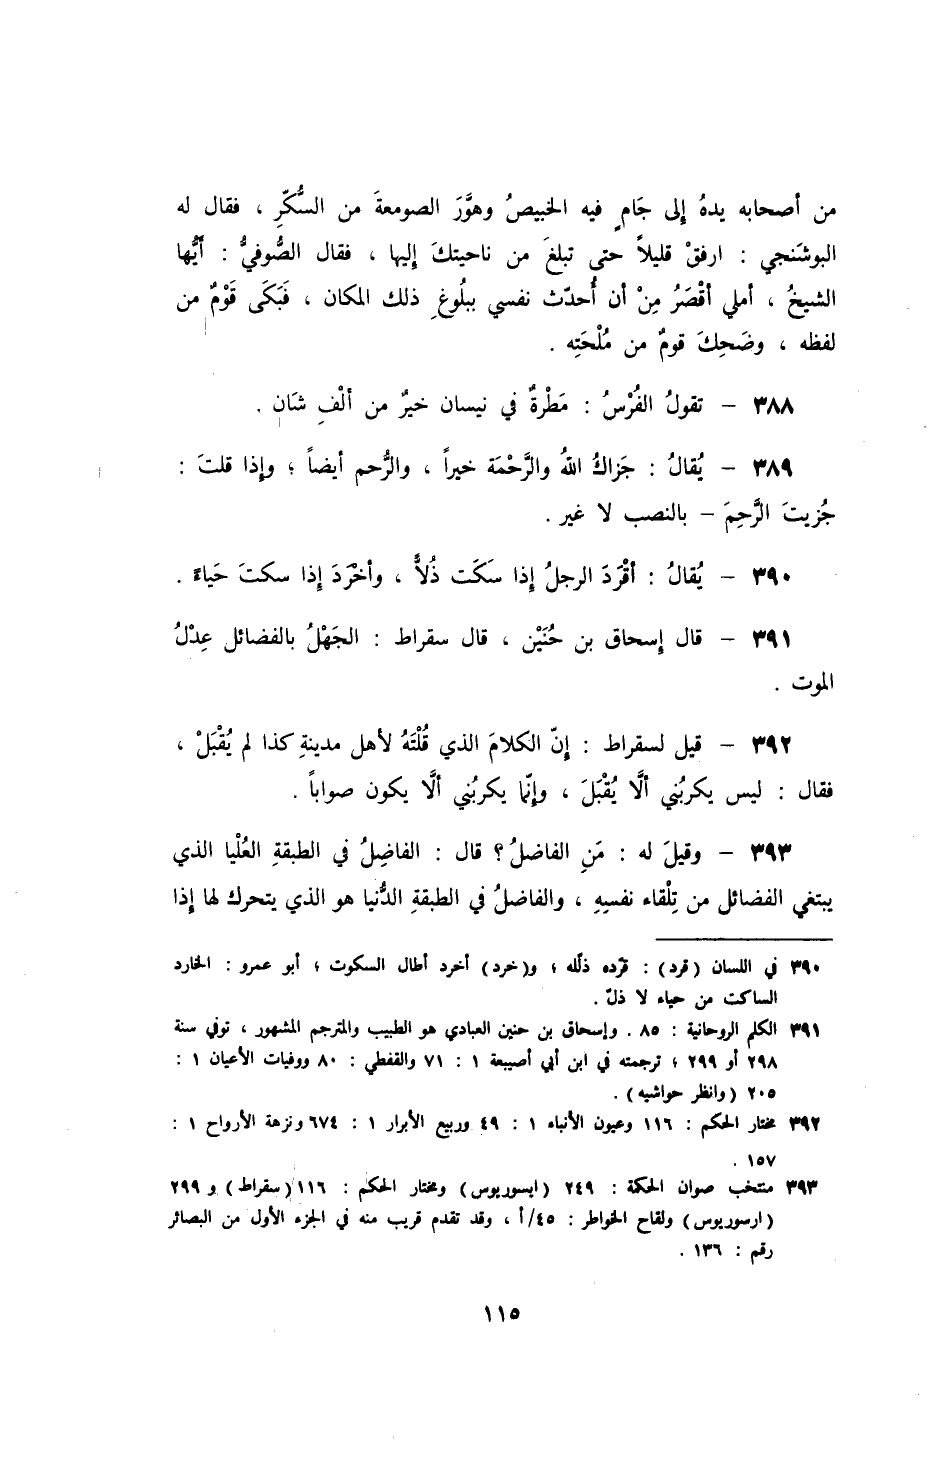 من أصحابه يدهُ إلى جَامٍ فيه الخبيصُ وهوَّرَ الصومعةَ من السُّكّرِ ، فقال له
البوشَنجي : ارفقْ قليلاً حتى تبلغَ من ناحيتكَ إليها ، فقال الصُّوفيُّ : أيُّها
الشيخُ ، أملي أقْصَرُ مِنْ أن أُحدّث نفسي ببلُوغِ ذلك المكان ، فَبَكَى قَوْمٌ من
لفظه ، وضَحِكَ قومٌ من مُلْحَتِه .
٣٨٨ – تقولُ الفُرْسُ : مَطْرةٌ في نيسان خيرٌ من ألْفِ شَانٍ .
٣٨٩ – يُقالُ : جَزاكُ اللهُ والرَّحْمَة خيراً ، والرُّحم أيضاً ؛ وإذا قلتَ :
جُزيتَ الرَّحِمَ – بالنصب لا غير .
٣٩٠ – يُقالُ : أقْرَدَ الرجلُ إذا سَكَت ذُلاًّ ، وأخْرَدَ إذا سكتَ حَياءً .
٣٩١ – قال إسحاق بن حُنَيْن ، قال سقراط : الجَهْلُ بالفضائل عِدْلُ
الموت .
٣٩٢ – قيل لسقراط : إنّ الكلامَ الذي قُلْتَهُ لأهل مدينةِ كذا لم يُقْبَلْ ،
فقال : ليس يكربُني ألَّا يُقْبَلَ ، وإنّما يكربُني ألَّا يكون صواباً .
٣٩٣ – وقيلَ له : مَنِ الفاضلُ؟ قال : الفاضِلُ في الطبقةِ العُلْيا الذي
يبتغي الفضائل من تِلْقاء نفسِهِ ، والفاضلُ في الطبقةِ الدُّنيا هو الذي يتحرك لها إذا
٣٩٠ في اللسان (قرد) : قرّده ذلّله ؛ و(خرد) أخرد أطال السكوت ؛ أبو عمرو : الخارد
الساكت من حياء لا ذلّ .
٣٩١ الكلم الروحانية : ٨٥ . وإسحاق بن حنين العبادي هو الطبيب والمترجم المشهور ، توفي سنة
٢٩٨ أو ٢٩٩ ؛ ترجمته في ابن أبي أصيبعة ١ : ٧١ والقفطي : ٨٠ ووفيات الأعيان ١ :
٢٠٥ (وانظر حواشيه) .
٣٩٢ مختار الحكم : ١١٦ وعيون الأنباء ١ : ٤٩ وربيع الأبرار ١ : ٦٧٤ ونزهة الأرواح ١ :
١٥٧ .
٣٩٣ منتخب صوان الحكمة : ٢٤٩ (ايسوريوس) ومختار الحكم : ١١٦ (سقراط) و ٢٩٩
(ارسوريوس) ولقاح الخواطر : ٤٥/أ ، وقد تقدم قريب منه في الجزء الأول من البصائر
رقم : ١٣٦ .
١١٥